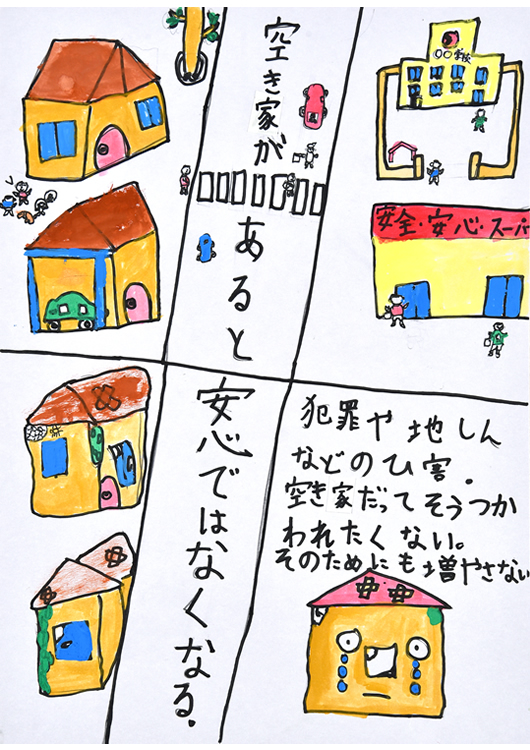 空き家が
あると
安心ではなくなる.
○○学校
安全・安心・スーパー
犯罪や地しん
などのひ害.
空き家だってそうつか
われたくない。
そのためにも増やさない